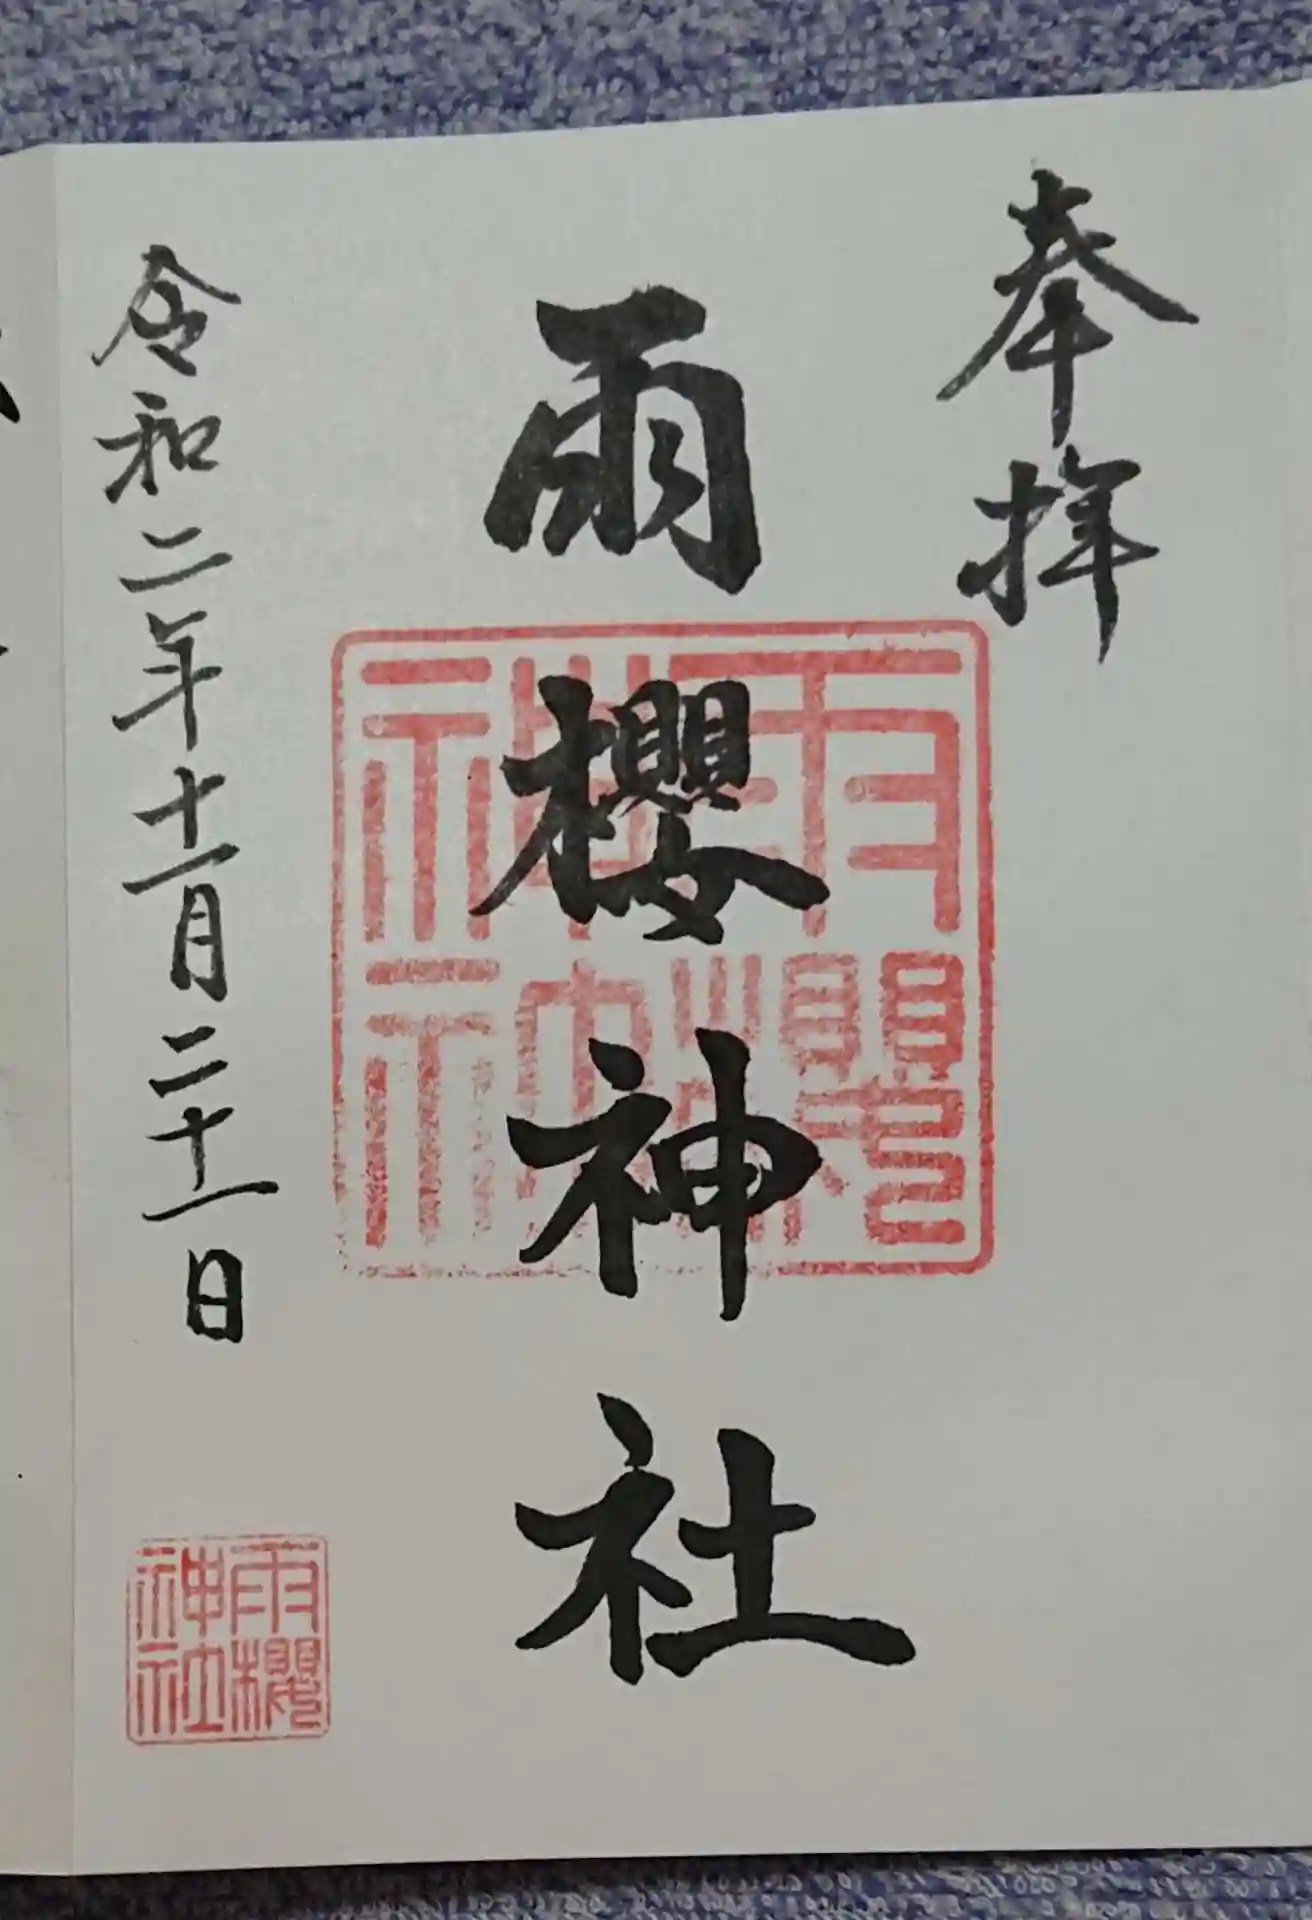 奉拝
雨櫻神社
令和二年十一月二十一日
雨櫻
神社
雨櫻
神社